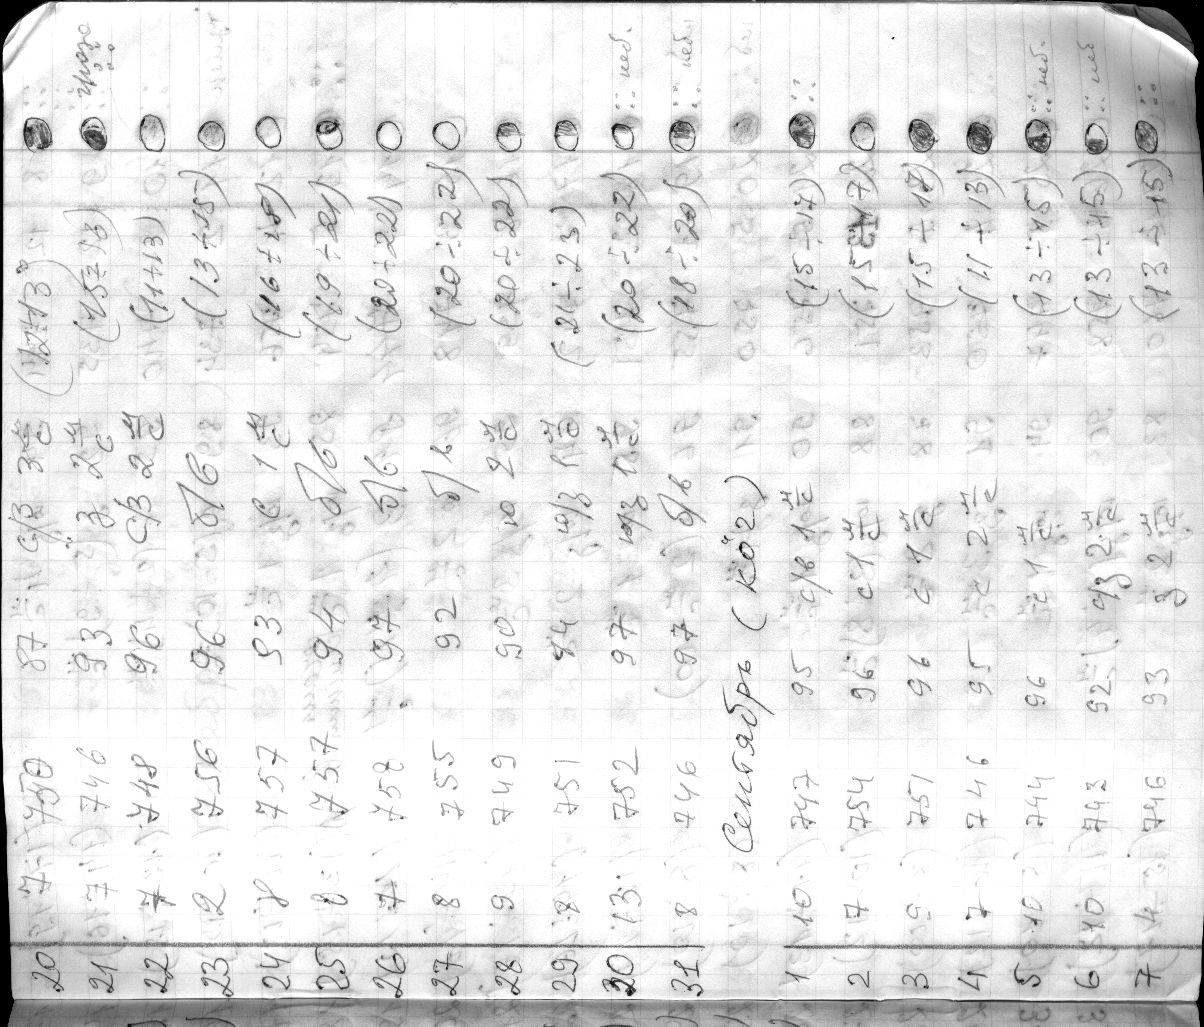 20 7 750 87 с/з 3 м/с (12÷13)
21 7 746 93 з 2 м/с (15÷13) гроза
22 7 748 96 с/з 2 м/с (11÷13)
23 12 756 96 б/в (13÷15)
24 8 757 93 с 1 м/с (16÷18)
25 8 757 94 б/в (19÷21)
26 7 758 97 б/в (20÷22)
27 8 755 92 б/в (20÷22)
28 9 749 90 ю 2 м/с (20÷22)
29 8 751 84 ю/з 1 м/с (21÷23)
30 13 752 97 ю/з 1 м/с (20÷22) неб.
31 8 746 97 б/в (18÷20) неб.
Сентябрь (
1 10 747 95 с/в 1 м/с (15÷17)
2 7 754 96 с 1 м/с (15÷17)
3 9 751 96 с 1 м/с (15÷17)
4 7 746 95 с 2 м/с (11÷13)
5 10 744 96 с 1 м/с (13÷15) неб.
6 10 743 92 с/з 2 м/с (13÷15) неб
7 4 746 93 з 2 м/с (13÷15)